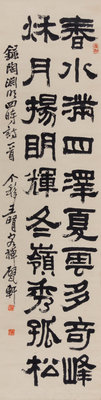 春水滿四澤夏雲多奇峰
秋月揚明輝冬嶺秀孤松
錄陶淵明四時詩一首
个簃王賢